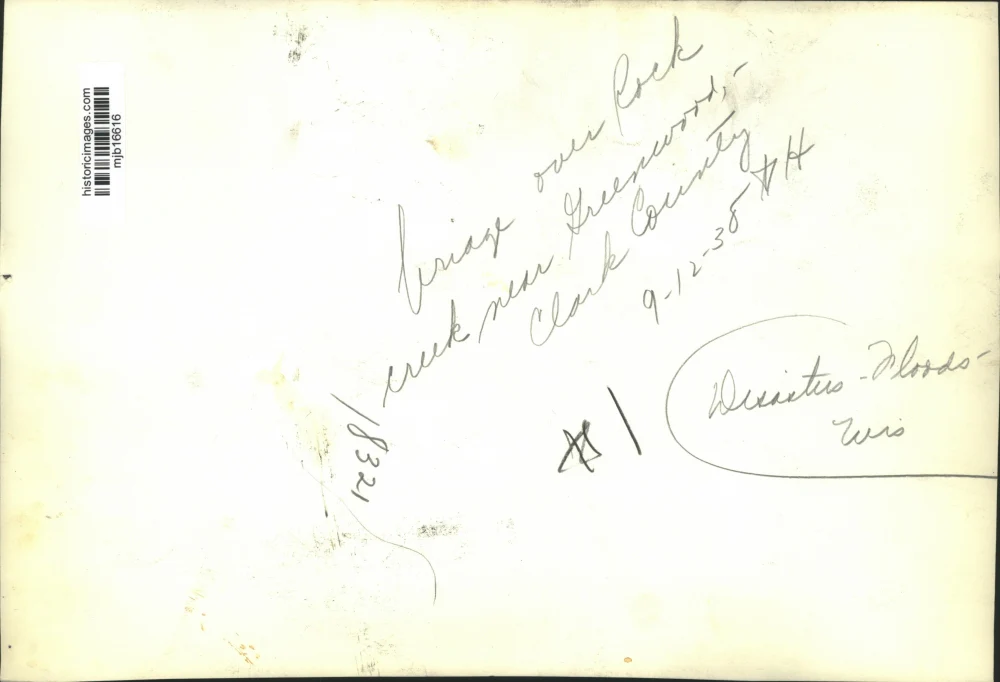 historicimages.com
mjb16616
bridge over Rock
creek near Greenwood,-
Clark County
9-12-38
18321
#1
Disasters - Floods -
Wis